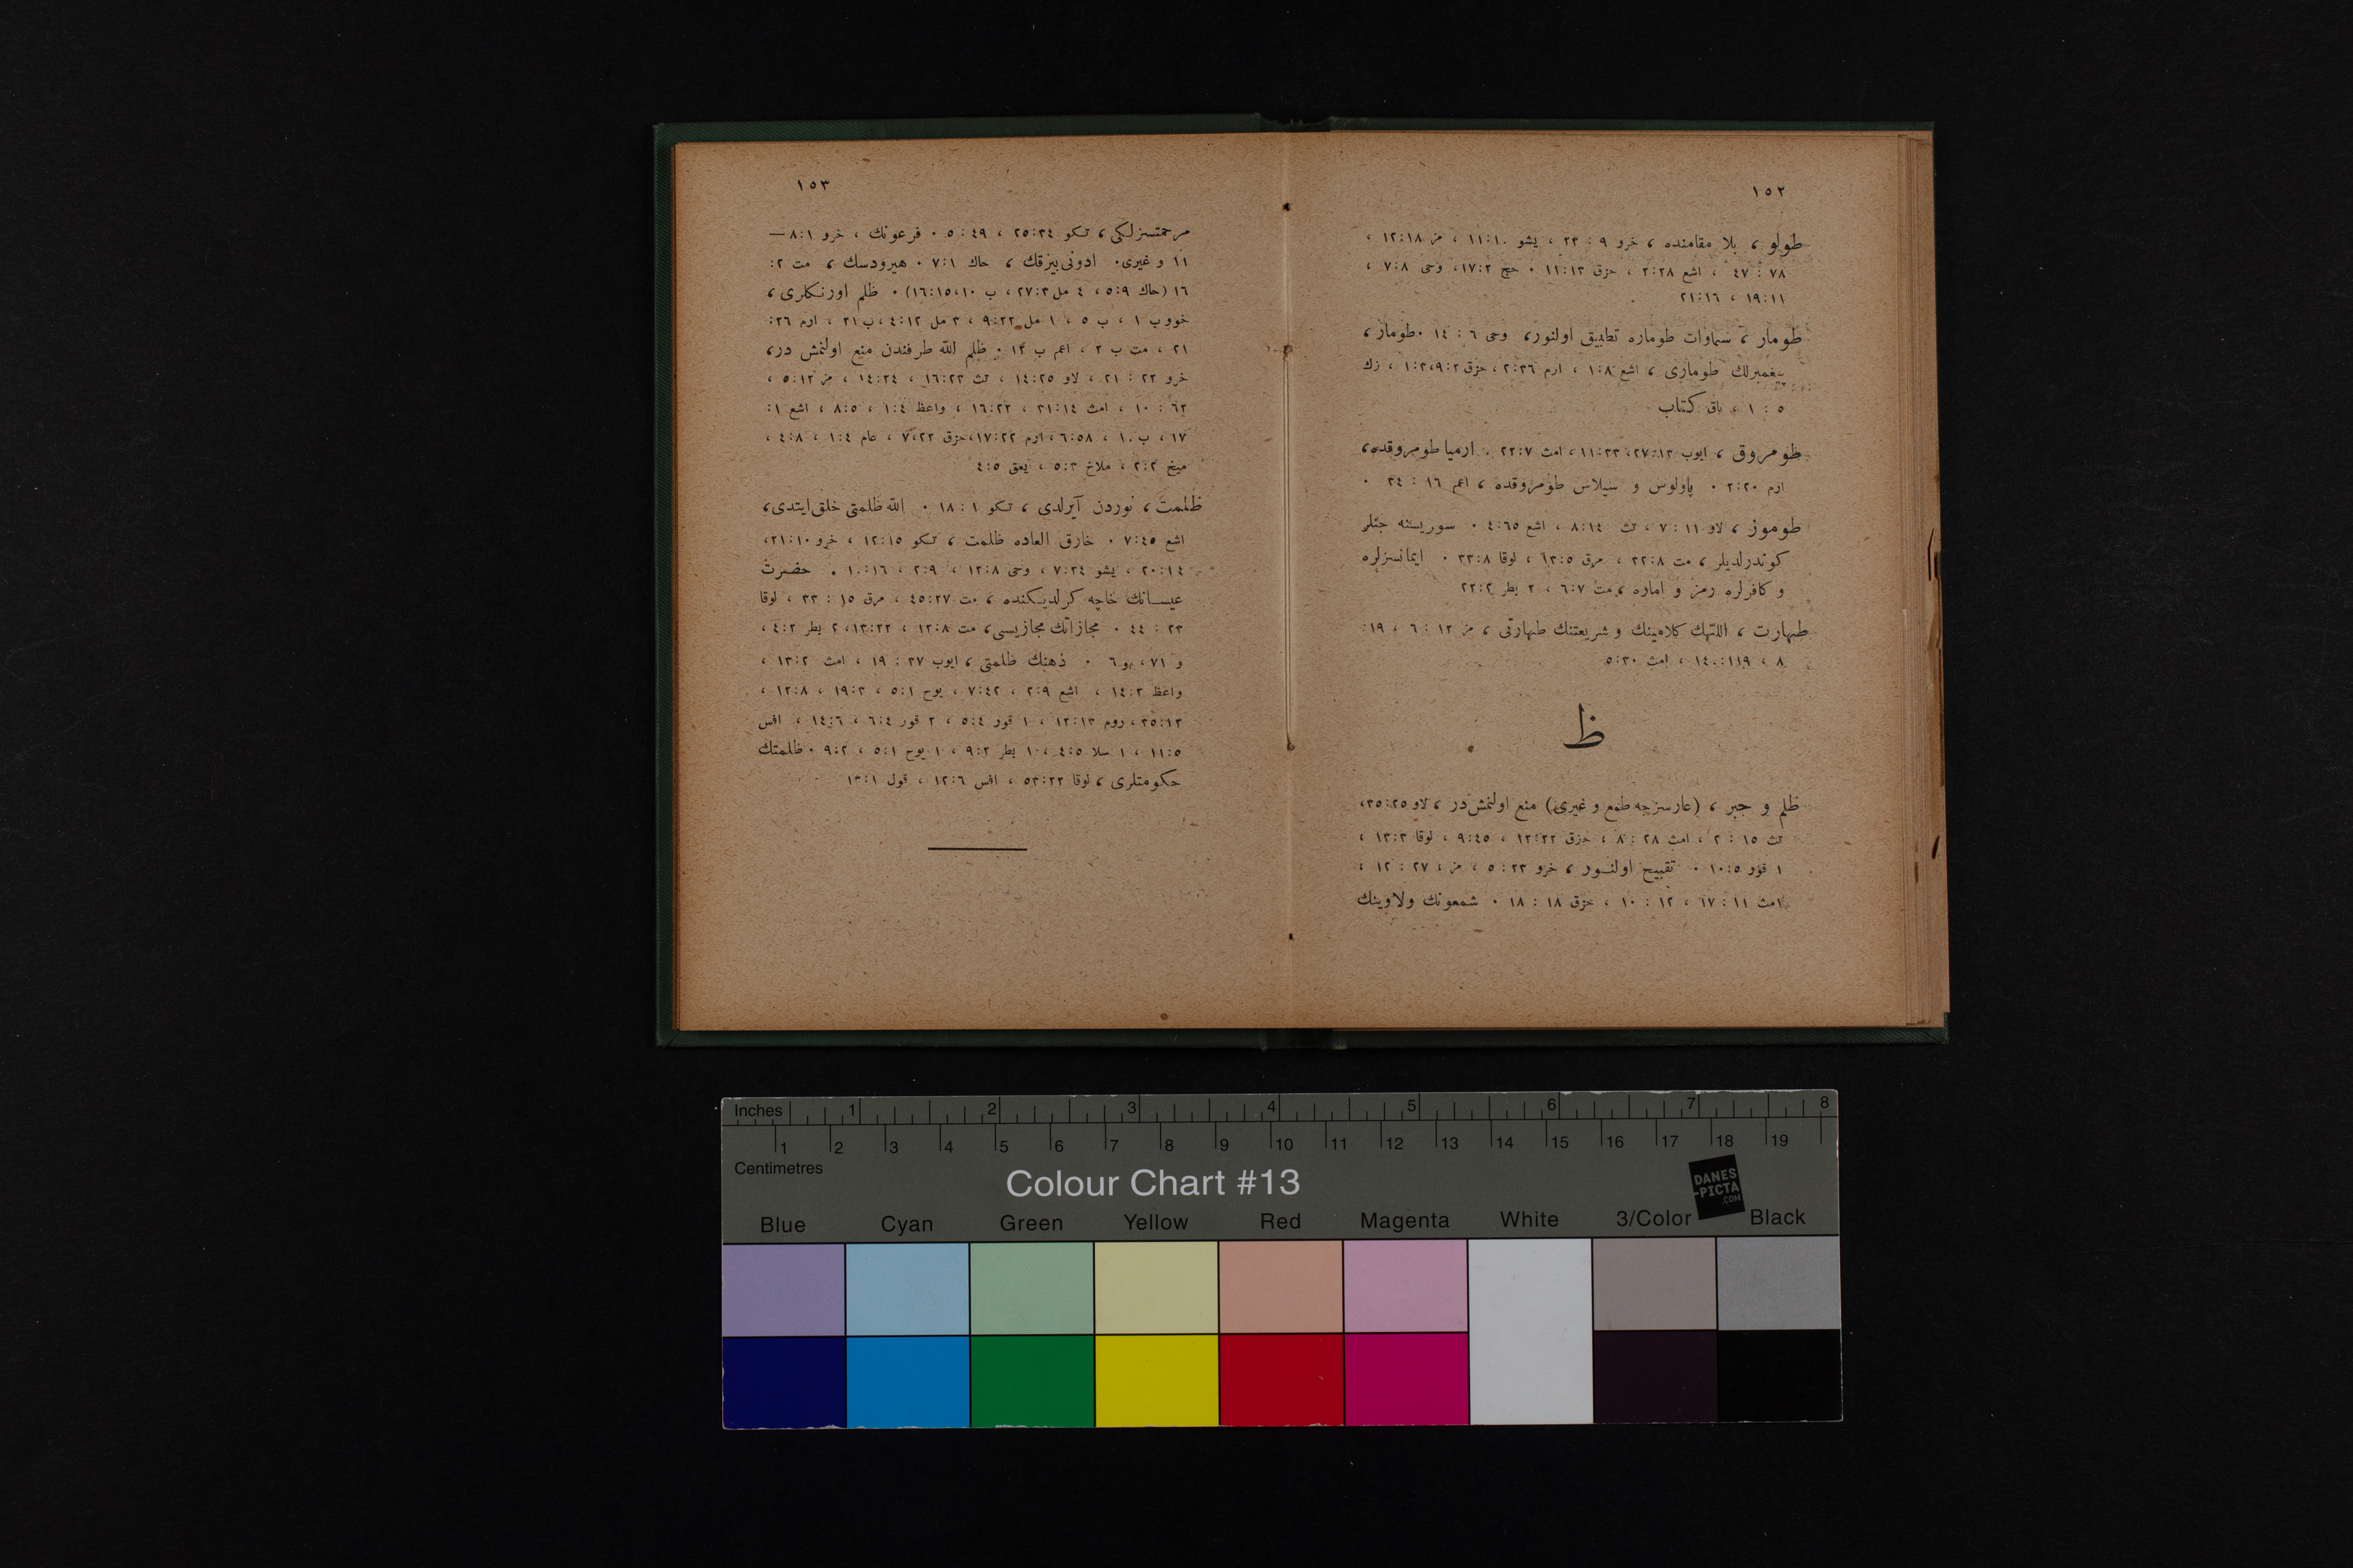 ١٥٢
طولو ، بلا مقامنده ، خرو ٩ : ٢٣ ، يشو ١٠:١١ ، مز ١٨:١٢ ،
٧٨ : ٤٧ ، اشع ٢٨:٢ ، حزق ١٣:١١ ٠ حج ٢:١٧، وحى ٨:٧ ،
١١:١٩ ، ١٦:٢١
طومار ، سماوات طوماره تطبيق اولنور، وحى ٦ : ١٤ ٠ طومار ،
پيغمبرلك طومارى ، اشع ٨:١ ، ارم ٣٦:٢ ، حزق ٢:٩،٣:١ ، زك
٥ : ١ ، باق كتاب
طومروق ، ايوب ١٣:٢٧، ٣٣:١١ ، امث ٧:٢٢ ٠ ارميا طومروقده،
ارم ٢٠:٢ ٠ پاولوس و سيلاس طومروقده ، اعم ١٦ : ٢٤ ٠
طوموز ، لاو ١١ : ٧ ، تث ١٤:٨ ، اشع ٦٥:٤ ٠ سوريسنه جنلر
كوندرلديلر ، مت ٨:٣٢ ، مرق ٥:١٣ ، لوقا ٨:٣٣ ٠ ايمانسزلره
و كافرلره رمز و اماره ، مت ٧:٦ ، ٢ بطر ٢:٢٢
طهارت ، اللّهك كلامينك و شريعتنك طهارتى ، مز ١٢ : ٦ ، ١٩:
٨ ، ١١٩:١٤٠ ، امث ٣٠:٥
ظ
ظلم و جبر ، (عارسزجه طمع و غيرى) منع اولنمش در ، لاو ٢٥:٣٥،
تث ١٥ : ٢ ، امث ٢٨ : ٨ ، حزق ٢٢:١٢ ، ٤٥:٩ ، لوقا ٣:١٣ ،
١ قور ٥:١٠ ٠ تقبيح اولنور ، خرو ٢٣ : ٥ ، مز ، ٢٧ : ١٢ ،
امث ١١ : ١٧ ، ١٢ : ١٠ ، حزق ١٨ : ١٨ ٠ شمعونك ولاوينك
١٥٣
مرحمتسزلكى ، تكو ٣٤:٢٥ ، ٤٩ : ٥ ٠ فرعونك ، خرو ١:٨—
١١ و غيرى ٠ ادونى بيزقك ، حاك ١:٧ ٠ هيرودسك ، مت ٢:
١٦ (حاك ٩:٥ ، ٤ مل ٣:٢٧ ، ب ١٠،١٥:١٦) ٠ ظلم اورنكلرى ،
خروب ١ ، ب ٥ ، ١ مل ٢٢:٩ ، ٣ مل ١٢:٤ ، ب ٢١ ، ارم ٢٦:
٢١ ، مت ب ٢ ، اعم ب ١٢ ٠ ظلم اللّه طرفندن منع اولنمش در،
خرو ٢٢ : ٢١ ، لاو ٢٥:١٤ ، تث ٢٣:١٦ ، ٢٤:١٤ ، مز ١٢:٥ ،
٦٢ : ١٠ ، امث ١٤:٣١ ، ٢٢:١٦ ، واعظ ٤:١ ، ٥:٨ ، اشع ١:
١٧ ، ب ١٠ ، ٥٨:٦ ، ارم ٢٢:١٧، حزق ٢٢،٧ ، عام ٤:١ ، ٨:٤ ،
ميخ ٢:٢ ، ملاخ ٣:٥ ، يعق ٥:٤
ظلمت ، نوردن آيرلدى ، تكو ١ : ١٨ ٠ اللّه ظلمتى خلق ايتدى،
اشع ٤٥:٧ ٠ خارق العاده ظلمت ، تكو ١٥:١٢ ، خرو ١٠:٢١،
١٤:٢٠ ، يشو ٢٤:٧ ، وحى ٨:١٢ ، ٩:٢ ، ١٦:١٠ ٠ حضرت
عيسانك خاچه كرلديكنده ، مت ٢٧:٤٥ ، مرق ١٥ : ٣٣ ، لوقا
٢٣ : ٤٤ ٠ مجازاتك مجازيسى، مت ٨:١٢ ، ٢٢:١٣، ٢ بطر ٢:٤ ،
و ١٧، يو ٦ ٠ ذهنك ظلمتى ، ايوب ٣٧ : ١٩ ، امث ٢:١٣ ،
واعظ ٢:١٤ ، اشع ٩:٢ ، ٤٢:٧ ، يوح ١:٥ ، ٣:١٩ ، ٨:١٢ ،
١٢:٣٥ ، روم ١٣:١٢ ، ١ قور ٤:٥ ، ٢ قور ٤:٦ ، ٦:١٤ ، افس
٥:١١ ، ١ سلا ٥:٤ ، ١ بطر ٢:٩ ، ١ يوح ١:٥ ، ٢:٩ ٠ ظلمتك
حكومتلرى ، لوقا ٢٢:٥٣ ، افس ٦:١٢ ، قول ١:١٣
Inches 1 2 3 4 5 6 7 8
1 2 3 4 5 6 7 8 9 10 11 12 13 14 15 16 17 18 19
Centimetres
Colour Chart #13
DANES
-PICTA
.COM
Blue Cyan Green Yellow Red Magenta White 3/Color Black